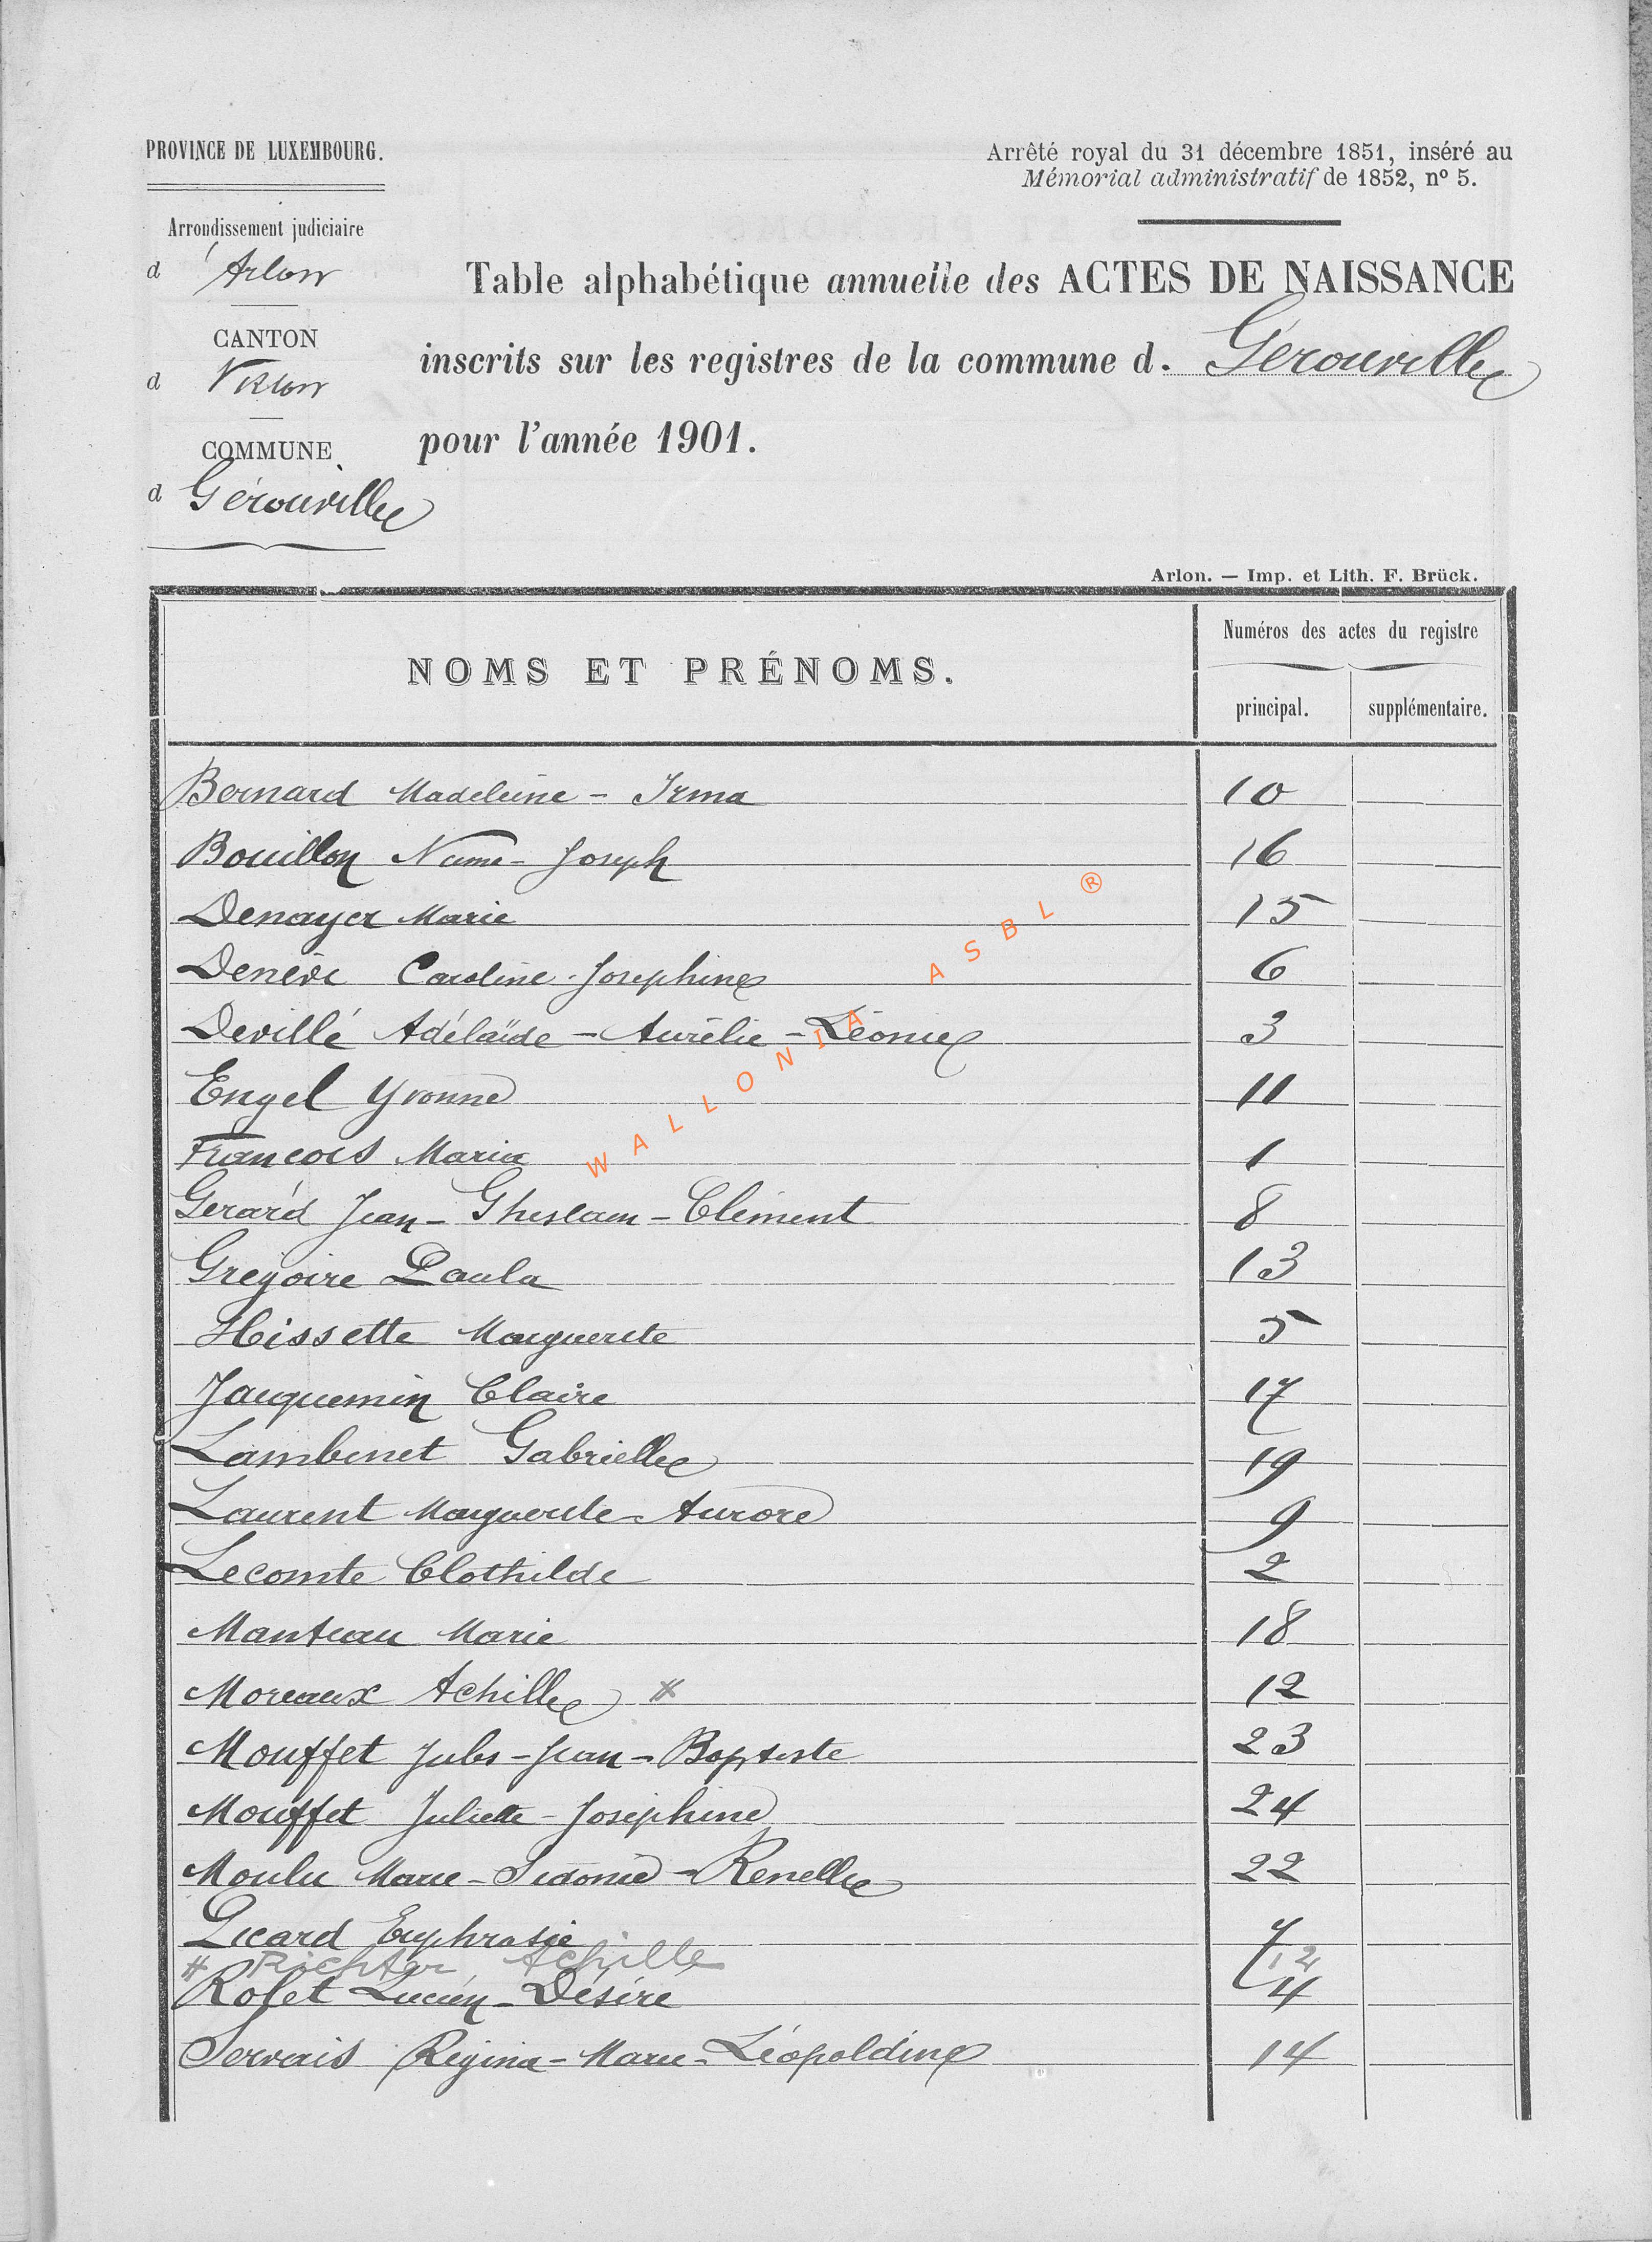 PROVINCE DE LUXEMBOURG.
Arrêté royal du 31 décembre 1851, inséré au
Mémorial administratif de 1852, nº 5.
Arrondissement judiciaire
d'Arlon
CANTON
d Virton
COMMUNE
d Gérouville
Table alphabétique annuelle des ACTES DE NAISSANCE
inscrits sur les registres de la commune d. Gérouville
pour l'année 1901.
Arlon. — Imp. et Lith. F. Brück.
NOMS ET PRÉNOMS.
Numéros des actes du registre
principal. supplémentaire.
Bernard Madeleine - Irma 10
Bouillon Numa - Joseph 16
Denayer Marie 15
Denève Caroline - Josephine 6
Devillé Adélaïde - Aurélie - Léonie 3
Engel Yvonne 11
François Maria 1
Gerard Jean - Ghislain - Clément 8
Gregoire Paula 13
Hissette Marguerite 5
Jacquemin Claire 17
Lambinet Gabrielle 19
Laurent Marguerite - Aurore 9
Lecomte Clothilde 2
Manteau Marie 18
Moreaux Achille # 12
Mouffet Jules - Jean - Baptiste 23
Mouffet Juliette - Joséphine 24
Moulu Marie - Sidonie - Renelle 22
Picard Euphrasie 7
# Richter Achille 12
Rolet Lucien - Désiré 4
Servais Régina - Marie - Léopoldine 14
WALLONIA ASBL ®